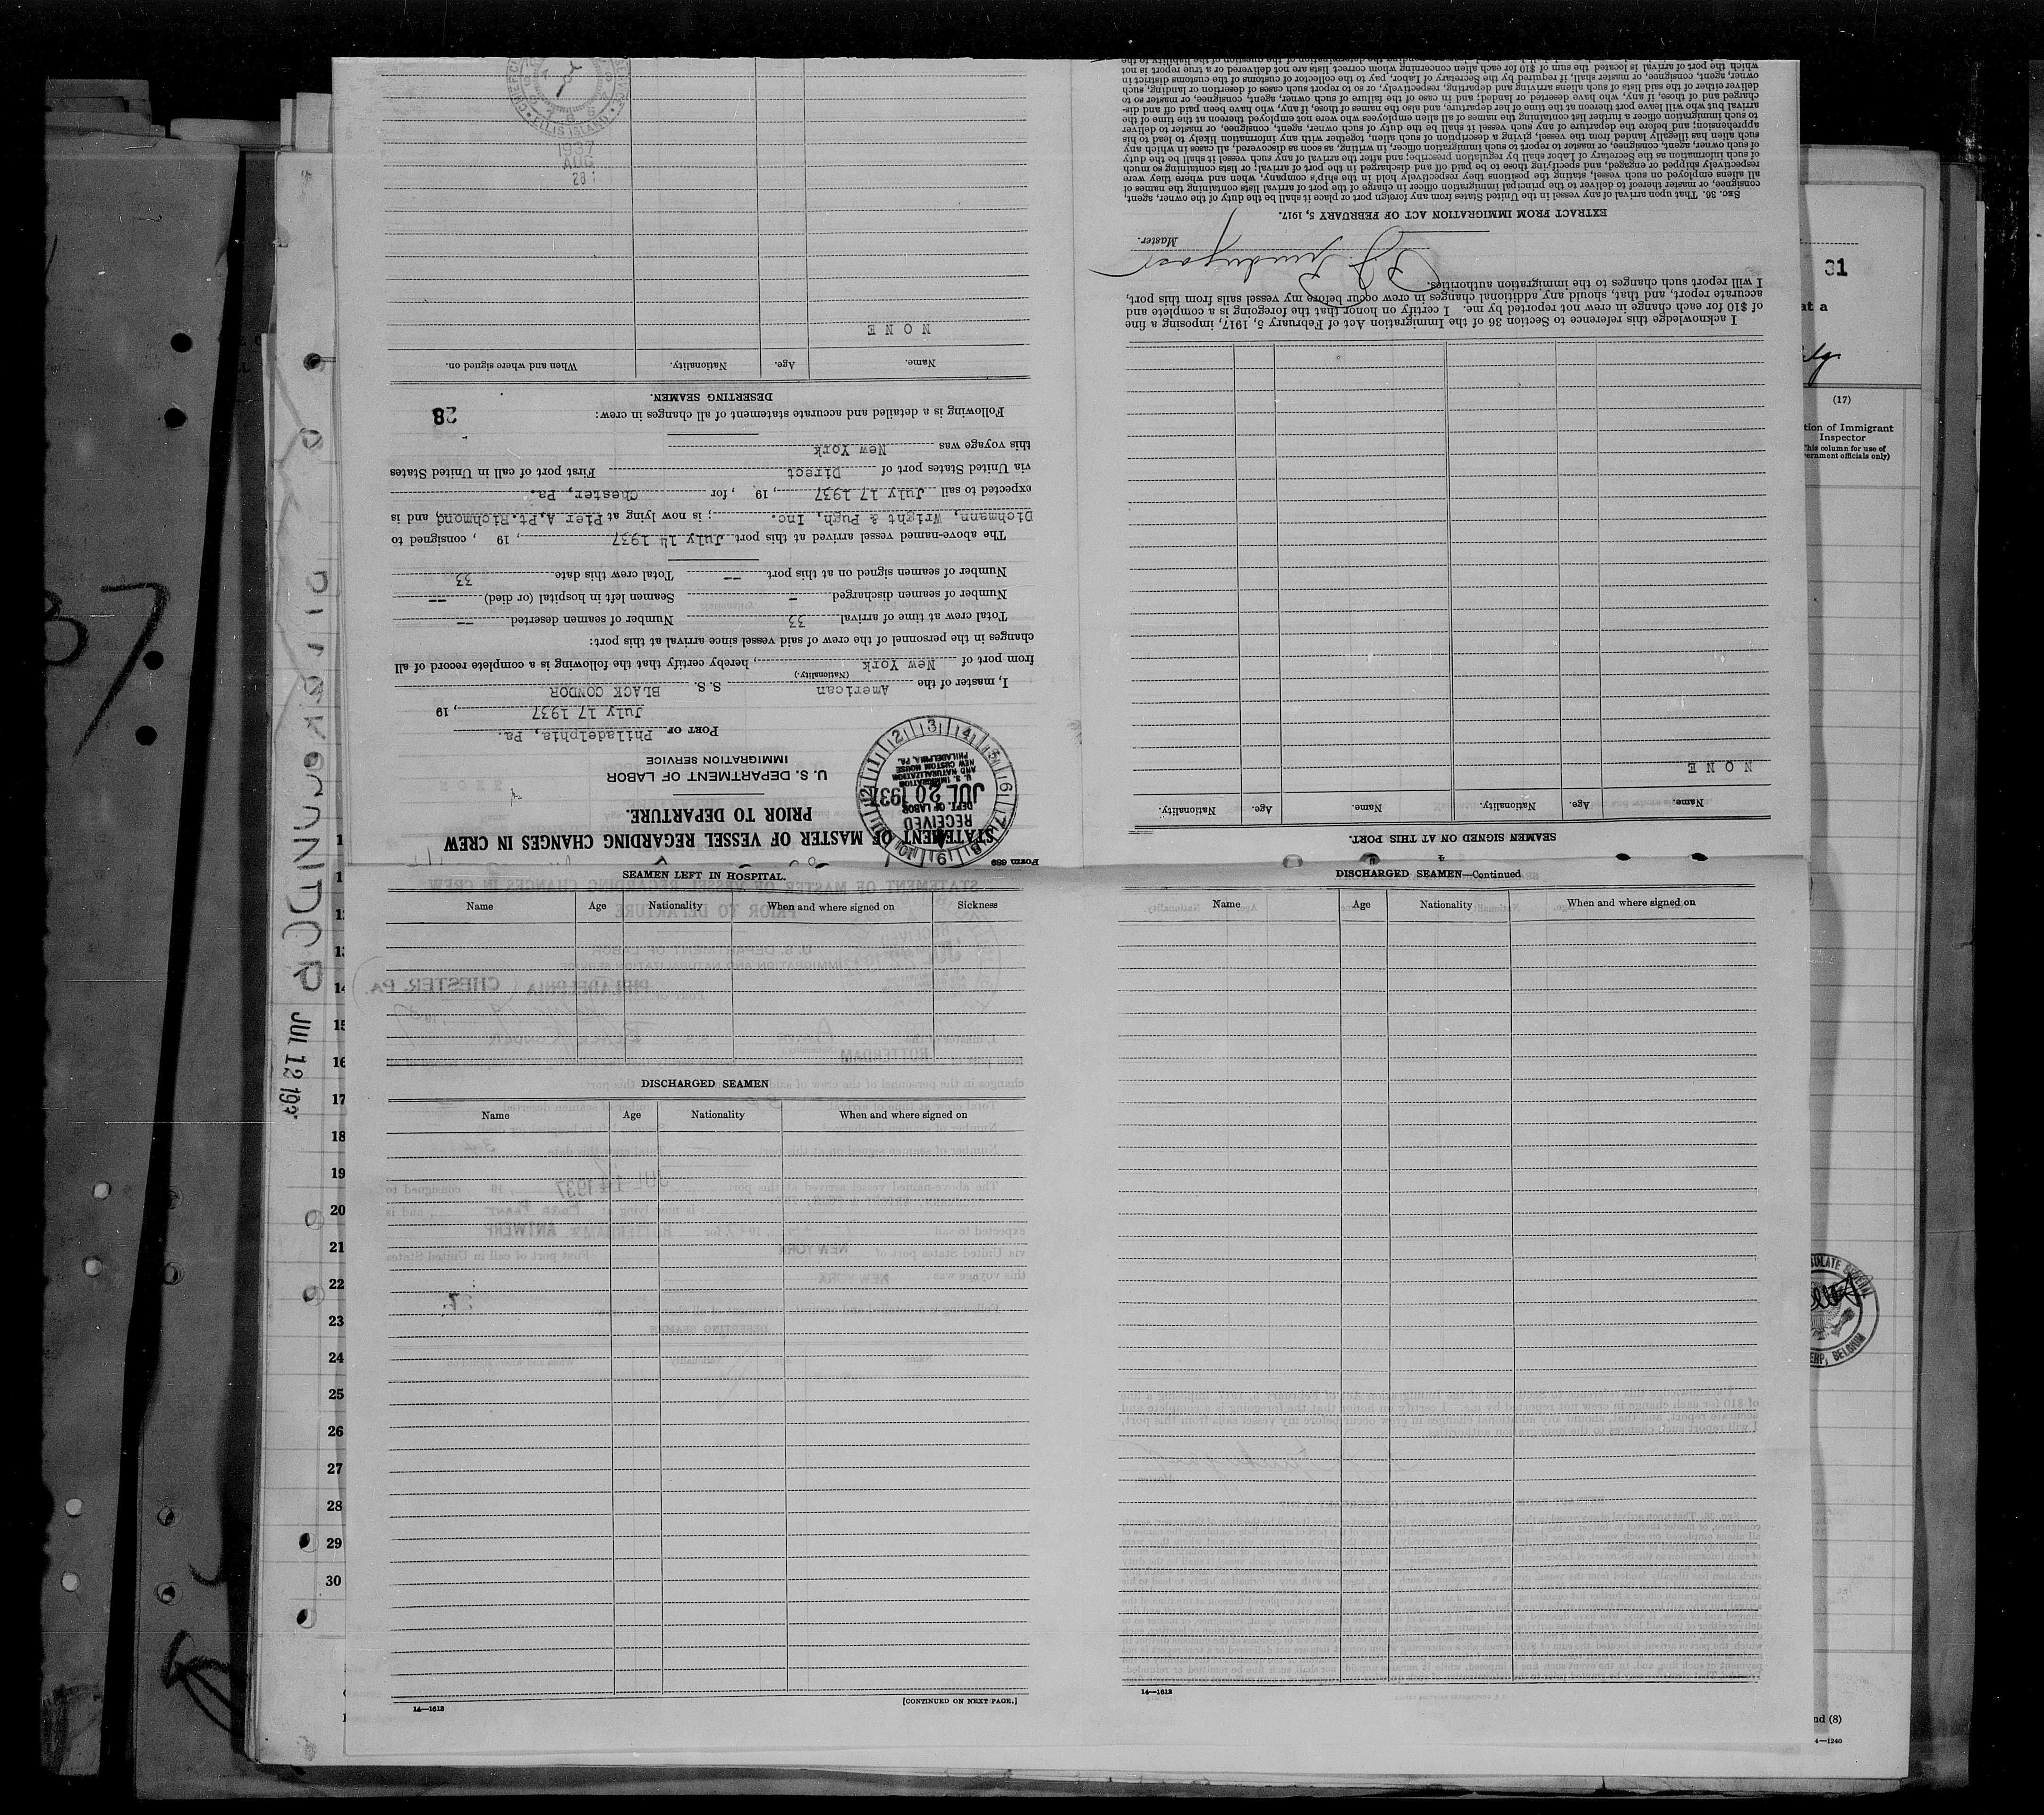 Form 689
STATEMENT OF MASTER OF VESSEL REGARDING CHANGES IN CREW
PRIOR TO DEPARTURE.
RECEIVED
DEPT. OF LABOR
JUL 20 1937
U. S. IMMIGRATION
AND NATURALIZATION
NEW CUSTOM HOUSE
PHILADELPHIA, PA.
U. S. DEPARTMENT OF LABOR
IMMIGRATION SERVICE
PORT OF Philadelphia, Pa.
July 17 1937, 19
I, master of the American S. S. BLACK CONDOR
(Nationality.)
from port of New York, hereby certify that the following is a complete record of all
changes in the personnel of the crew of said vessel since arrival at this port:
Total crew at time of arrival 33 Number of seamen deserted --
Number of seamen discharged - Seamen left in hospital (or died) --
Number of seamen signed on at this port -- Total crew this date 33
The above-named vessel arrived at this port July 14 1937, 19 , consigned to
Dichmann, Wright & Pugh, Inc. ; is now lying at Pier A, Pt. Richmond, and is
expected to sail July 17 1937, 19 , for Chester, Pa.
via United States port of Direct First port of call in United States
this voyage was New York
Following is a detailed and accurate statement of all changes in crew:
28
DESERTING SEAMEN.
Name. Age. Nationality. When and where signed on.
NONE
28
AUG
1937
ELLIS ISLAND
SEAMEN SIGNED ON AT THIS PORT.
Name. Age. Nationality. Name. Age. Nationality.
NONE
I acknowledge this reference to Section 36 of the Immigration Act of February 5, 1917, imposing a fine
of $10 for each change in crew not reported by me. I certify on honor that the foregoing is a complete and
accurate report, and that, should any additional changes in crew occur before my vessel sails from this port,
I will report such changes to the immigration authorities.
Master.
EXTRACT FROM IMMIGRATION ACT OF FEBRUARY 5, 1917.
SEC. 36. That upon arrival of any vessel in the United States from any foreign port or place it shall be the duty of the owner, agent,
consignee, or master thereof to deliver to the principal immigration officer in charge of the port of arrival lists containing the names of
all aliens employed on such vessel, stating the positions they respectively hold in the ship's company, when and where they were
respectively shipped or engaged, and specifying those to be paid off and discharged in the port of arrival; or lists containing so much
of such information as the Secretary of Labor shall by regulation prescribe; and after the arrival of any such vessel it shall be the duty
of such owner, agent, consignee, or master to report to such immigration officer, in writing, as soon as discovered, all cases in which any
such alien has illegally landed from the vessel, giving a description of such alien, together with any information likely to lead to his
apprehension; and before the departure of any such vessel it shall be the duty of such owner, agent, consignee, or master to deliver
to such immigration officer a further list containing the names of all alien employees who were not employed thereon at the time of the
arrival but who will leave port thereon at the time of her departure, and also the names of those, if any, who have been paid off and dis-
charged and of those, if any, who have deserted or landed; and in case of the failure of such owner, agent, consignee, or master so to
deliver either of the said lists of such aliens arriving and departing, respectively, or so to report such cases of desertion or landing, such
owner, agent, consignee, or master shall, if required by the Secretary of Labor, pay to the collector of customs of the customs district in
which the port of arrival is located the sum of $10 for each alien concerning whom correct lists are not delivered or a true report is not
SEAMEN LEFT IN HOSPITAL.
Name Age Nationality When and where signed on Sickness
DISCHARGED SEAMEN
Name Age Nationality When and where signed on
[CONTINUED ON NEXT PAGE.]
14—1613
DISCHARGED SEAMEN—Continued
Name Age Nationality When and where signed on
14—1613
JUL 12 193
14
15
16
17
18
19
20
21
22
23
24
25
26
27
28
29
30
31
at a
(17)
tion of Immigrant
Inspector
This column for use of
ernment officials only)
SULATE GENERAL
ERP, BELGIUM
nd (8)
4—1240
37